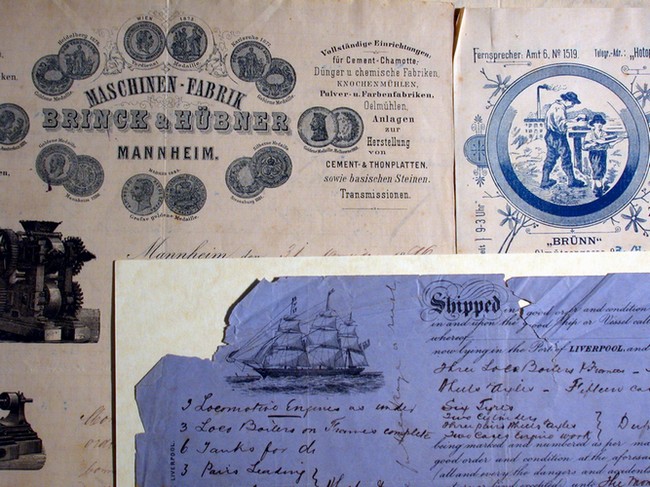 WIEN 1873
Verdienst Medaille
Heidelberg 1876
Goldene Medaille
Karlsruhe 1877
Goldene Medaille
MASCHINEN-FABRIK
BRINCK & HÜBNER
MANNHEIM.
Goldene Medaille
Silberne Medaille
Große goldene Medaille
Vollständige Einrichtungen,
für Cement-Chamotte,
Dünger u chemische Fabriken,
KNOCHENMÜHLEN,
Pulver- u. Farbenfabriken.
Oelmühlen,
Anlagen
zur
Herstellung
von
CEMENT- & THONPLATTEN,
sowie basischen Steinen.
Transmissionen.
Mannheim, den 31
Fernsprecher: Amt 6, No 1519.
Telegr.-Adr.: "Hotop
9-3 Uhr
"BRÜNN"
Shipped in good order and condition
in and upon the good Ship or Vessel call
whereof
now lying in the Port of LIVERPOOL, and
Three Loco Boilers & Frames
Wheels & Axles - Fifteen ca
3 Locomotive Engines as under
3 Loco Boilers on Frames complete
6 Tanks for do
3 Pairs Leading
Six Tyres
Two Cylinders
Three pairs Wheels & Axles
Two Cases Engine work
being marked and numbered as per ma
good order and condition at the aforesai
LIVERPOOL